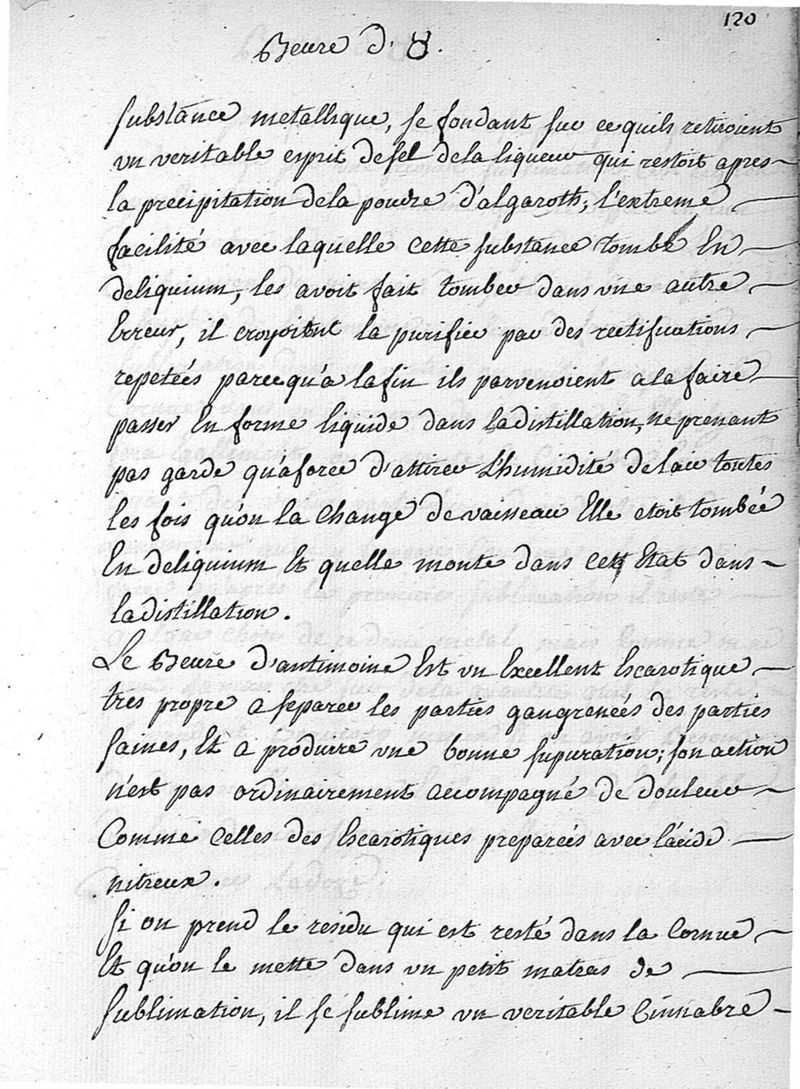 120
Beure d' ♁.
substance metallique, se fondant sur ce quils retiroient
un veritable esprit de sel de la liqueur qui restoit apres
la precipitation de la poudre d'algaroth; l'extreme
facilité avec laquelle cette substance tombe En
deliquium, les avoit fait tomber dans une autre
Erreur, il croyoient la purifier par des rectifications
repetées parcequ'a la fin ils parvenoient a la faire
passer En forme liquide dans la distillation, ne prenant
pas garde qua force d'attirer L'humidité de lair toutes
les fois qu'on la change de vaisseau Elle etoit tombée
En deliquium Et quelle monte dans cet Etat dans
la distillation.
Le Beure d'antimoine Est un Excellent Escarotique
tres propre a separer les parties gangrenées des parties
saines, Et a produire une bonne supuration; son action
n'est pas ordinairement accompagné de douleur
Comme celles des Escarotiques preparées avec l'acide
nitreux.
Si on prend le residu qui est resté dans la Cornue
Et qu'on le mette dans un petit matras de
Sublimation, il se sublime un veritable Cinnabre